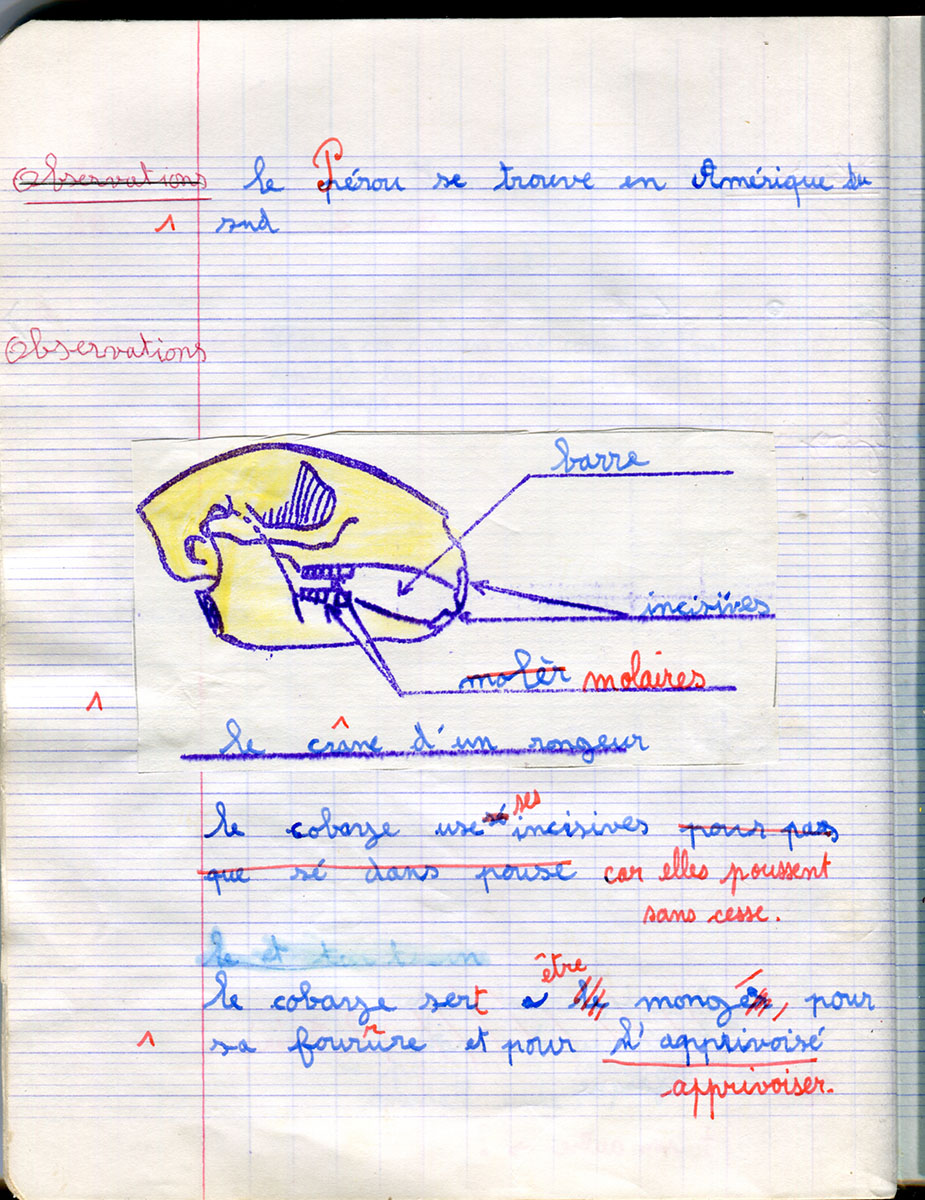 Observations le Pérou se trouve en Amérique du
1 sud
Observations
barre
incisives
molèr molaires
1
le crâne d'un rongeur
ses
le cobaze use sé incisives pour pas
que sé dans pouse car elles poussent
sans cesse.
être
le cobaze sert a le mangé, pour
1 sa fourrure et pour l'apprivoisé
apprivoiser.